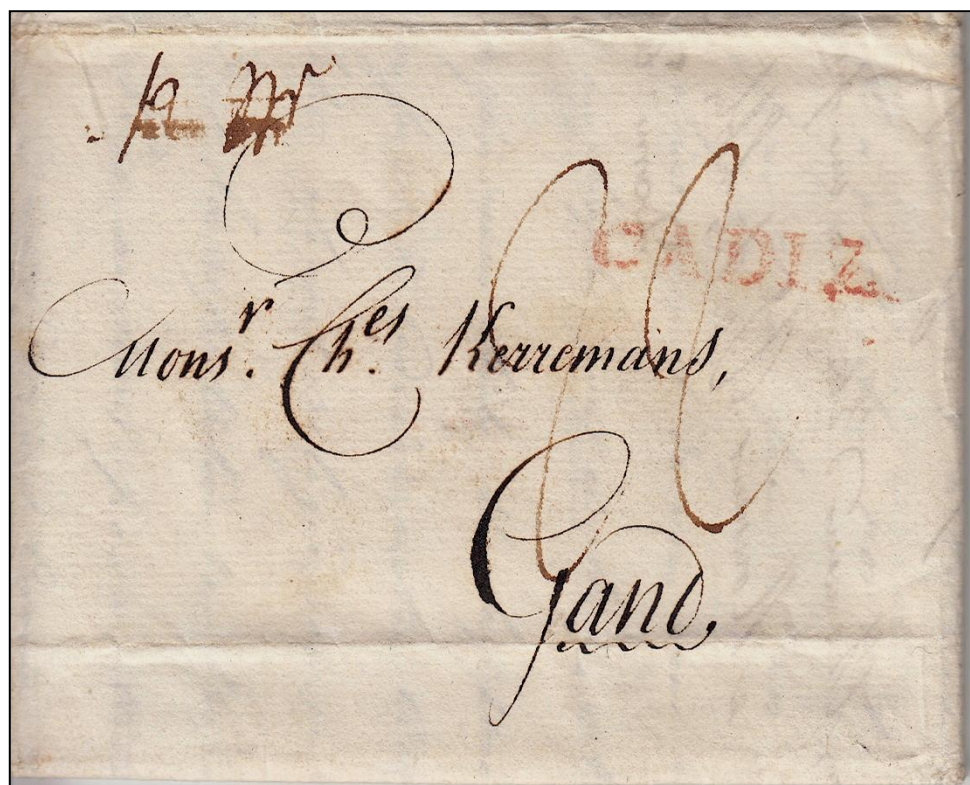 CADIZ
Monsr. Ches. Kerremans,
Gand.